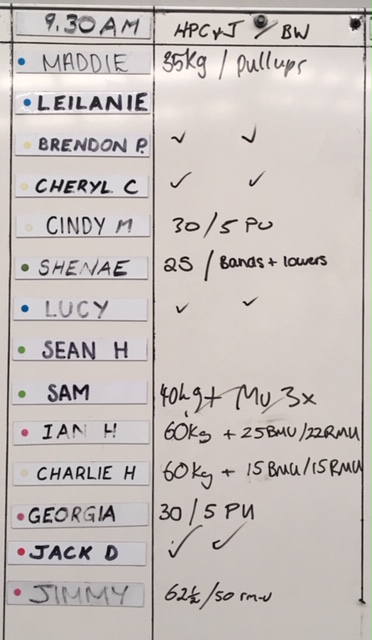 9.30AM HPC+J / BW
MADDIE 35kg / pullups
LEILANIE
BRENDON P. ✓ ✓
CHERYL C ✓ ✓
CINDY M 30/5 PU
SHENAE 25 / Bands + lowers
LUCY ✓ ✓
SEAN H
SAM 40kg + MU 3x
IAN H 60kg + 25BMU/22RMU
CHARLIE H 60kg + 15BMU/15RMU
GEORGIA 30/5 PU
JACK D ✓ ✓
JIMMY 62½/50 rm-u